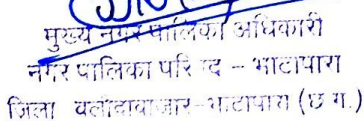 मुख्य नगर पालिका अधिकारी
नगर पालिका परिषद – भाटापारा
जिला बलौदाबाजार-भाटापारा (छ ग.)